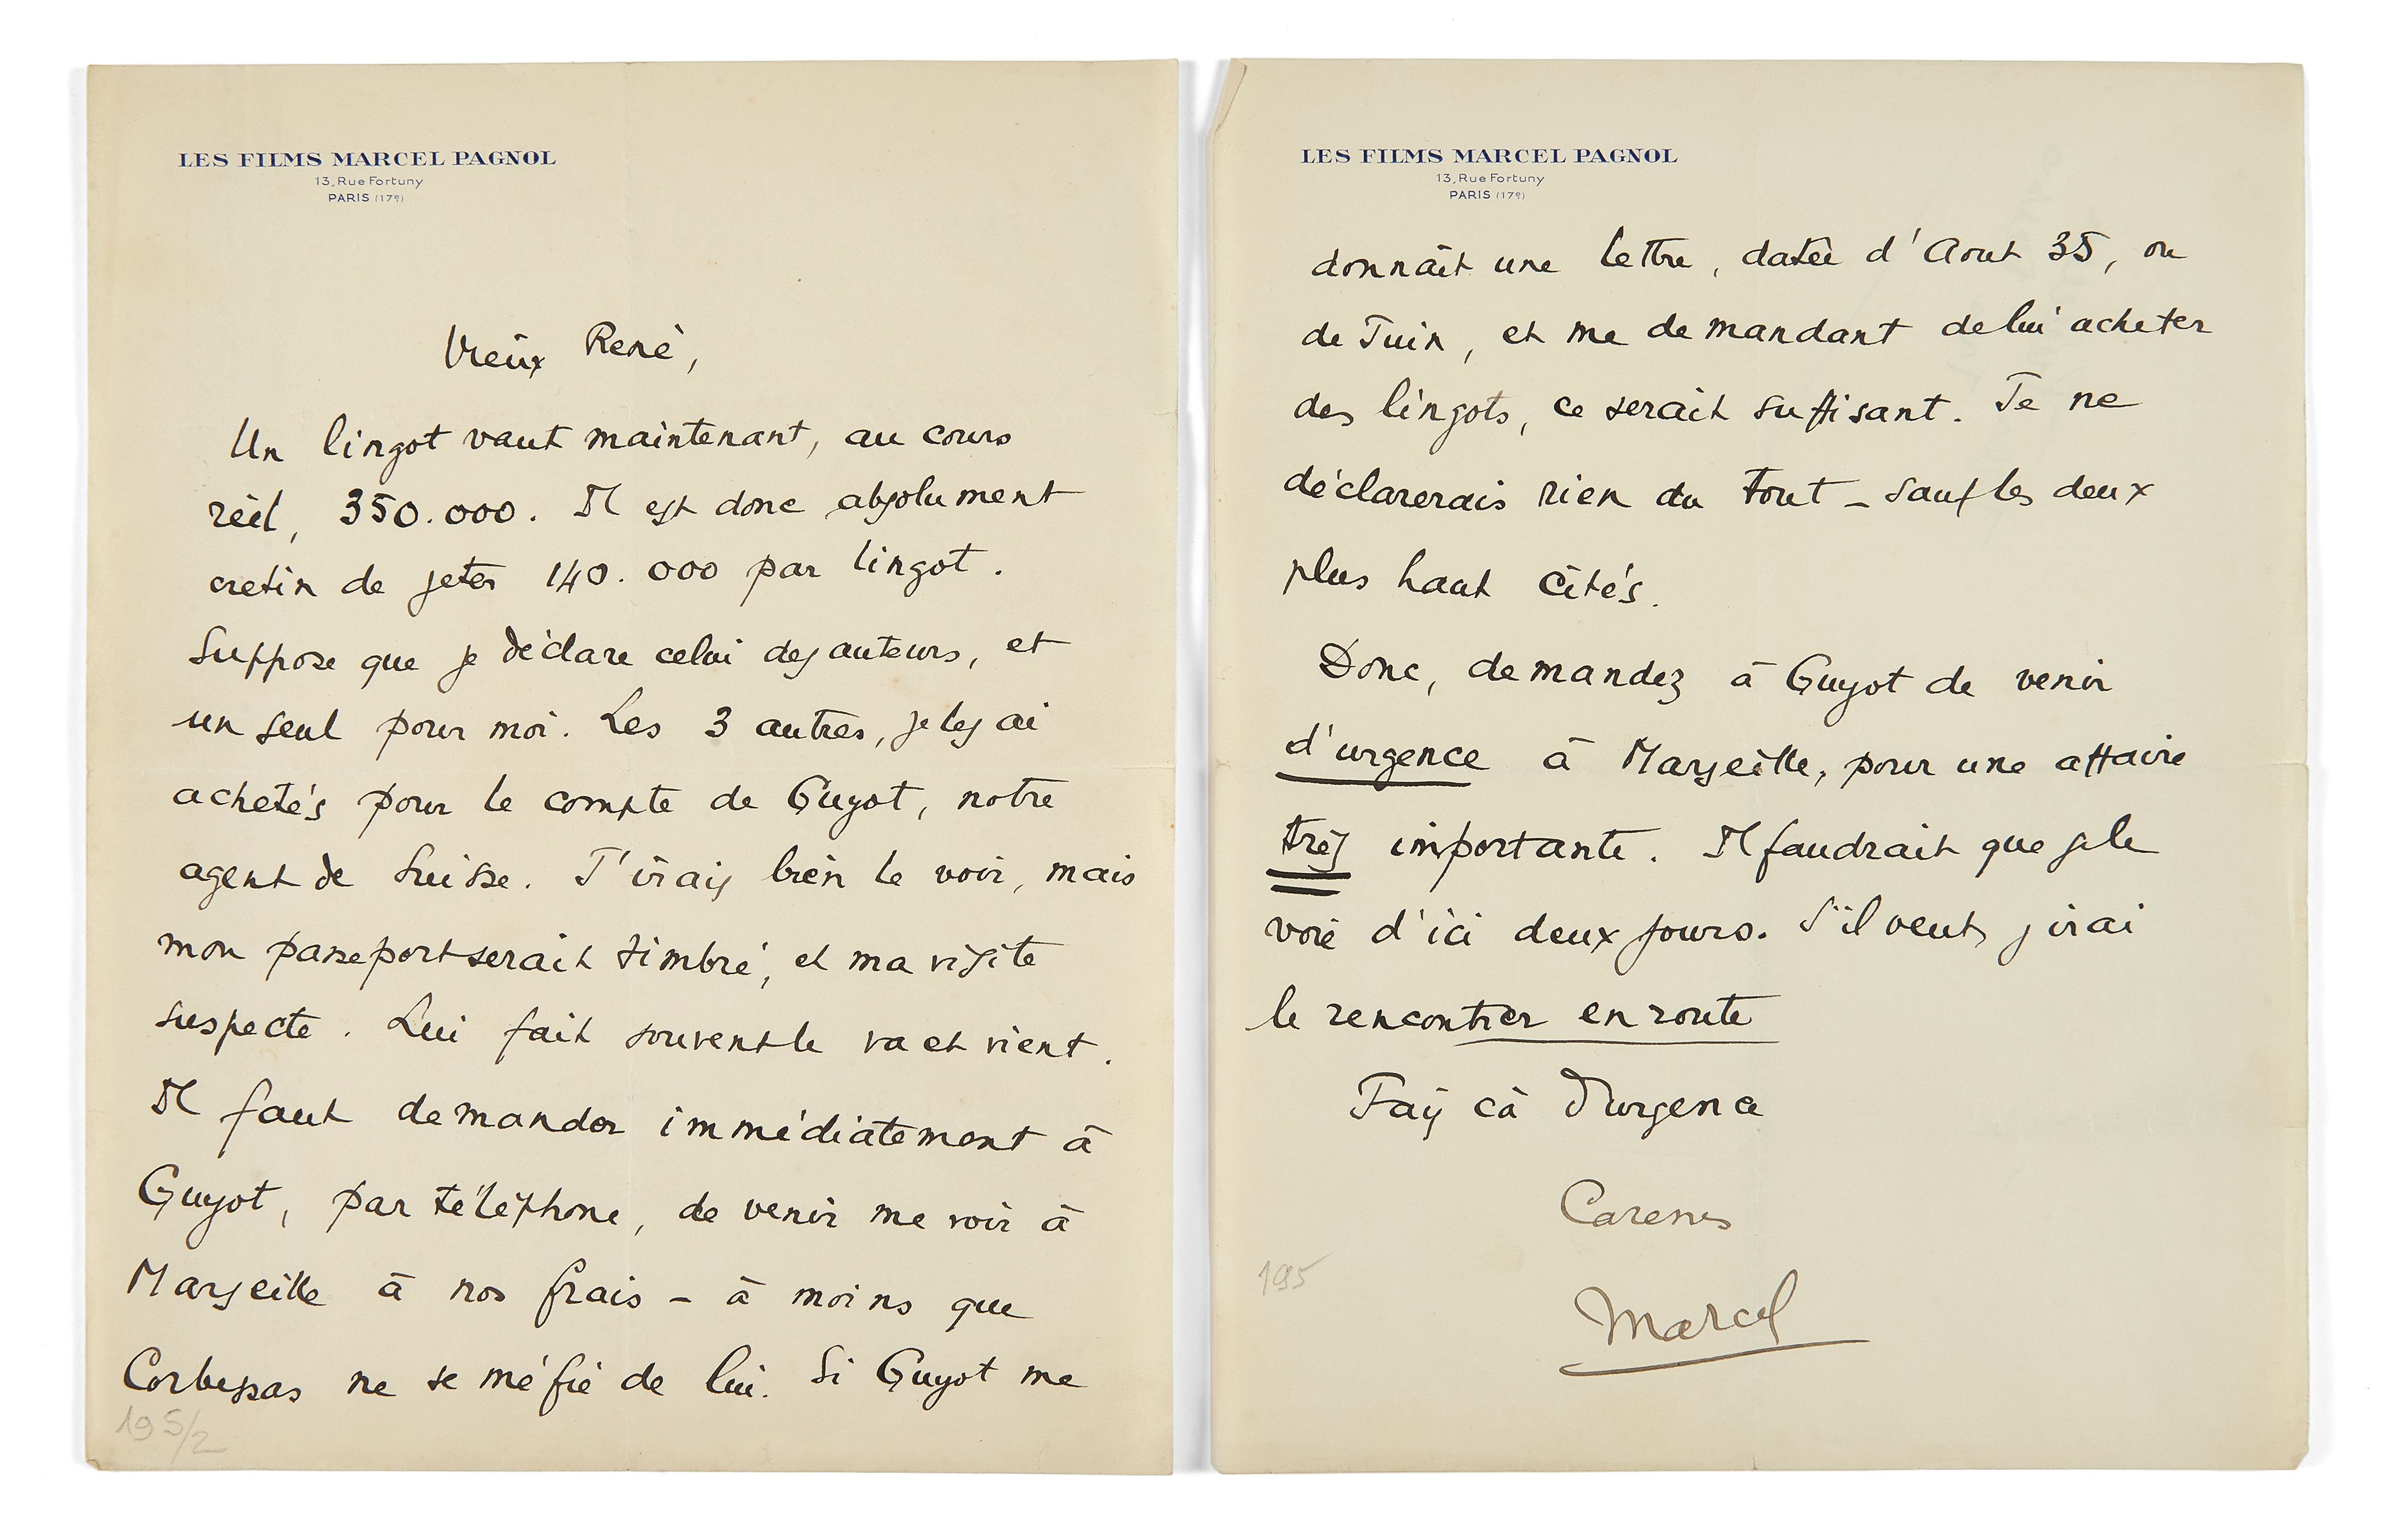 LES FILMS MARCEL PAGNOL
13, Rue Fortuny
PARIS (17e)
Vieux René,
Un lingot vaut maintenant, au cours
réel, 350.000. Il est donc absolument
cretin de jeter 140.000 par lingot.
Suppose que je déclare celui des auteurs, et
un seul pour moi. Les 3 autres, je les ai
achetés pour le compte de Guyot, notre
agent de Suisse. J'irais bien le voir, mais
mon passeport serait timbré, et ma visite
suspecte. Lui fait souvent le va et vient.
Il faut demander immédiatement à
Guyot, par téléphone, de venir me voir à
Marseille à nos frais – à moins que
Corbessas ne se méfie de lui. Si Guyot me
195/2
LES FILMS MARCEL PAGNOL
13, Rue Fortuny
PARIS (17e)
donnait une lettre, datée d'Aout 35, ou
de Juin, et me demandant de lui acheter
des lingots, ce serait suffisant. Je ne
déclarerais rien du tout – sauf les deux
plus haut cités.
Donc, demandez à Guyot de venir
d'urgence à Marseille, pour une affaire
très importante. Il faudrait que je le
voie d'ici deux jours. S'il veut, j'irai
le rencontrer en route
Fais çà d'urgence
Marcel
195